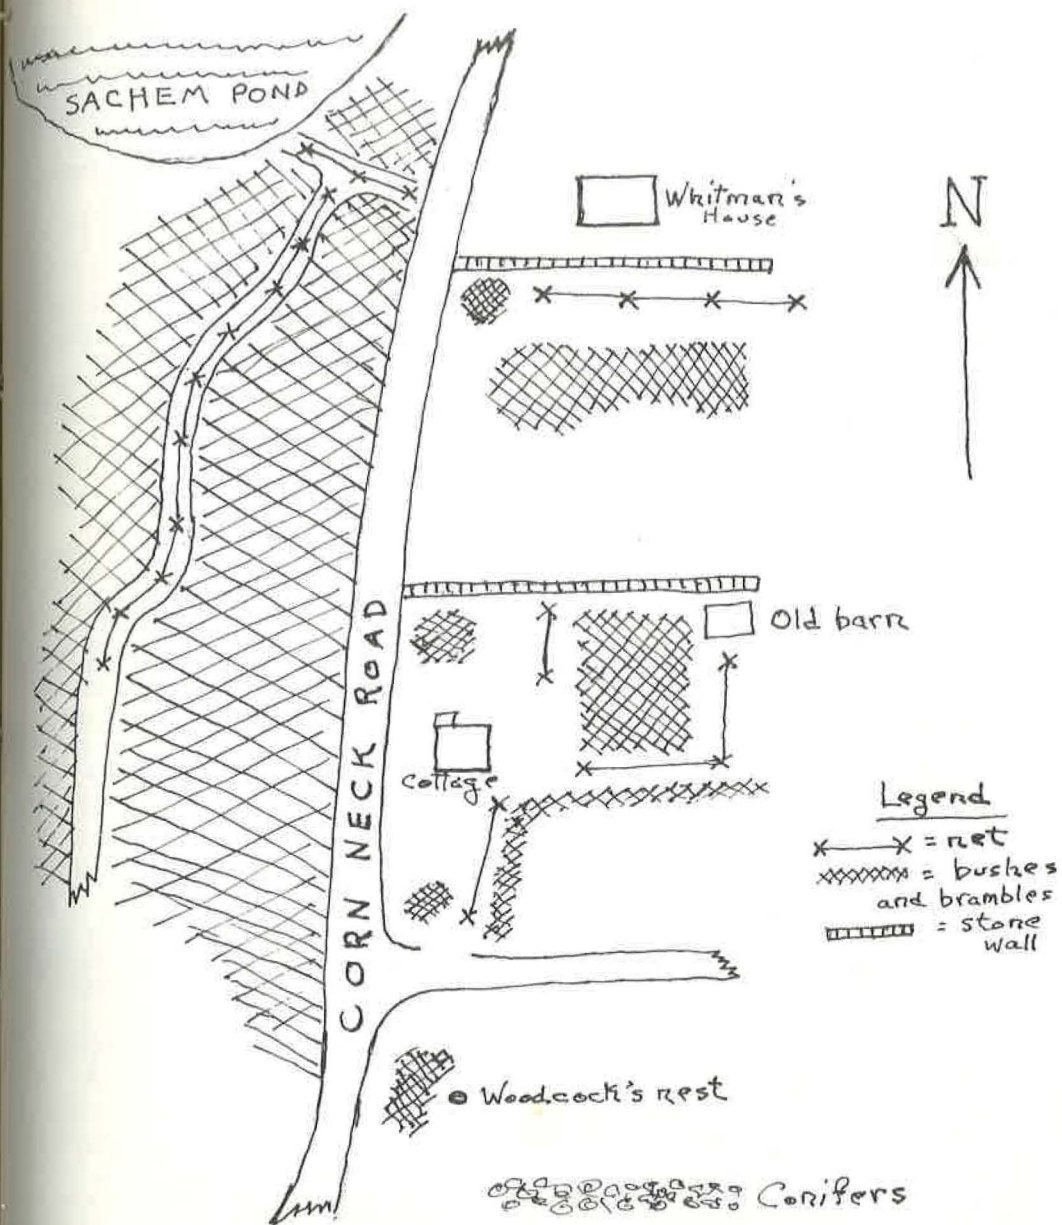 SACHEM POND
Whitman's
House
N
Old barn
CORN NECK ROAD
Cottage
Legend
= net
= bushes
and brambles
= stone
wall
Woodcock's nest
Conifers